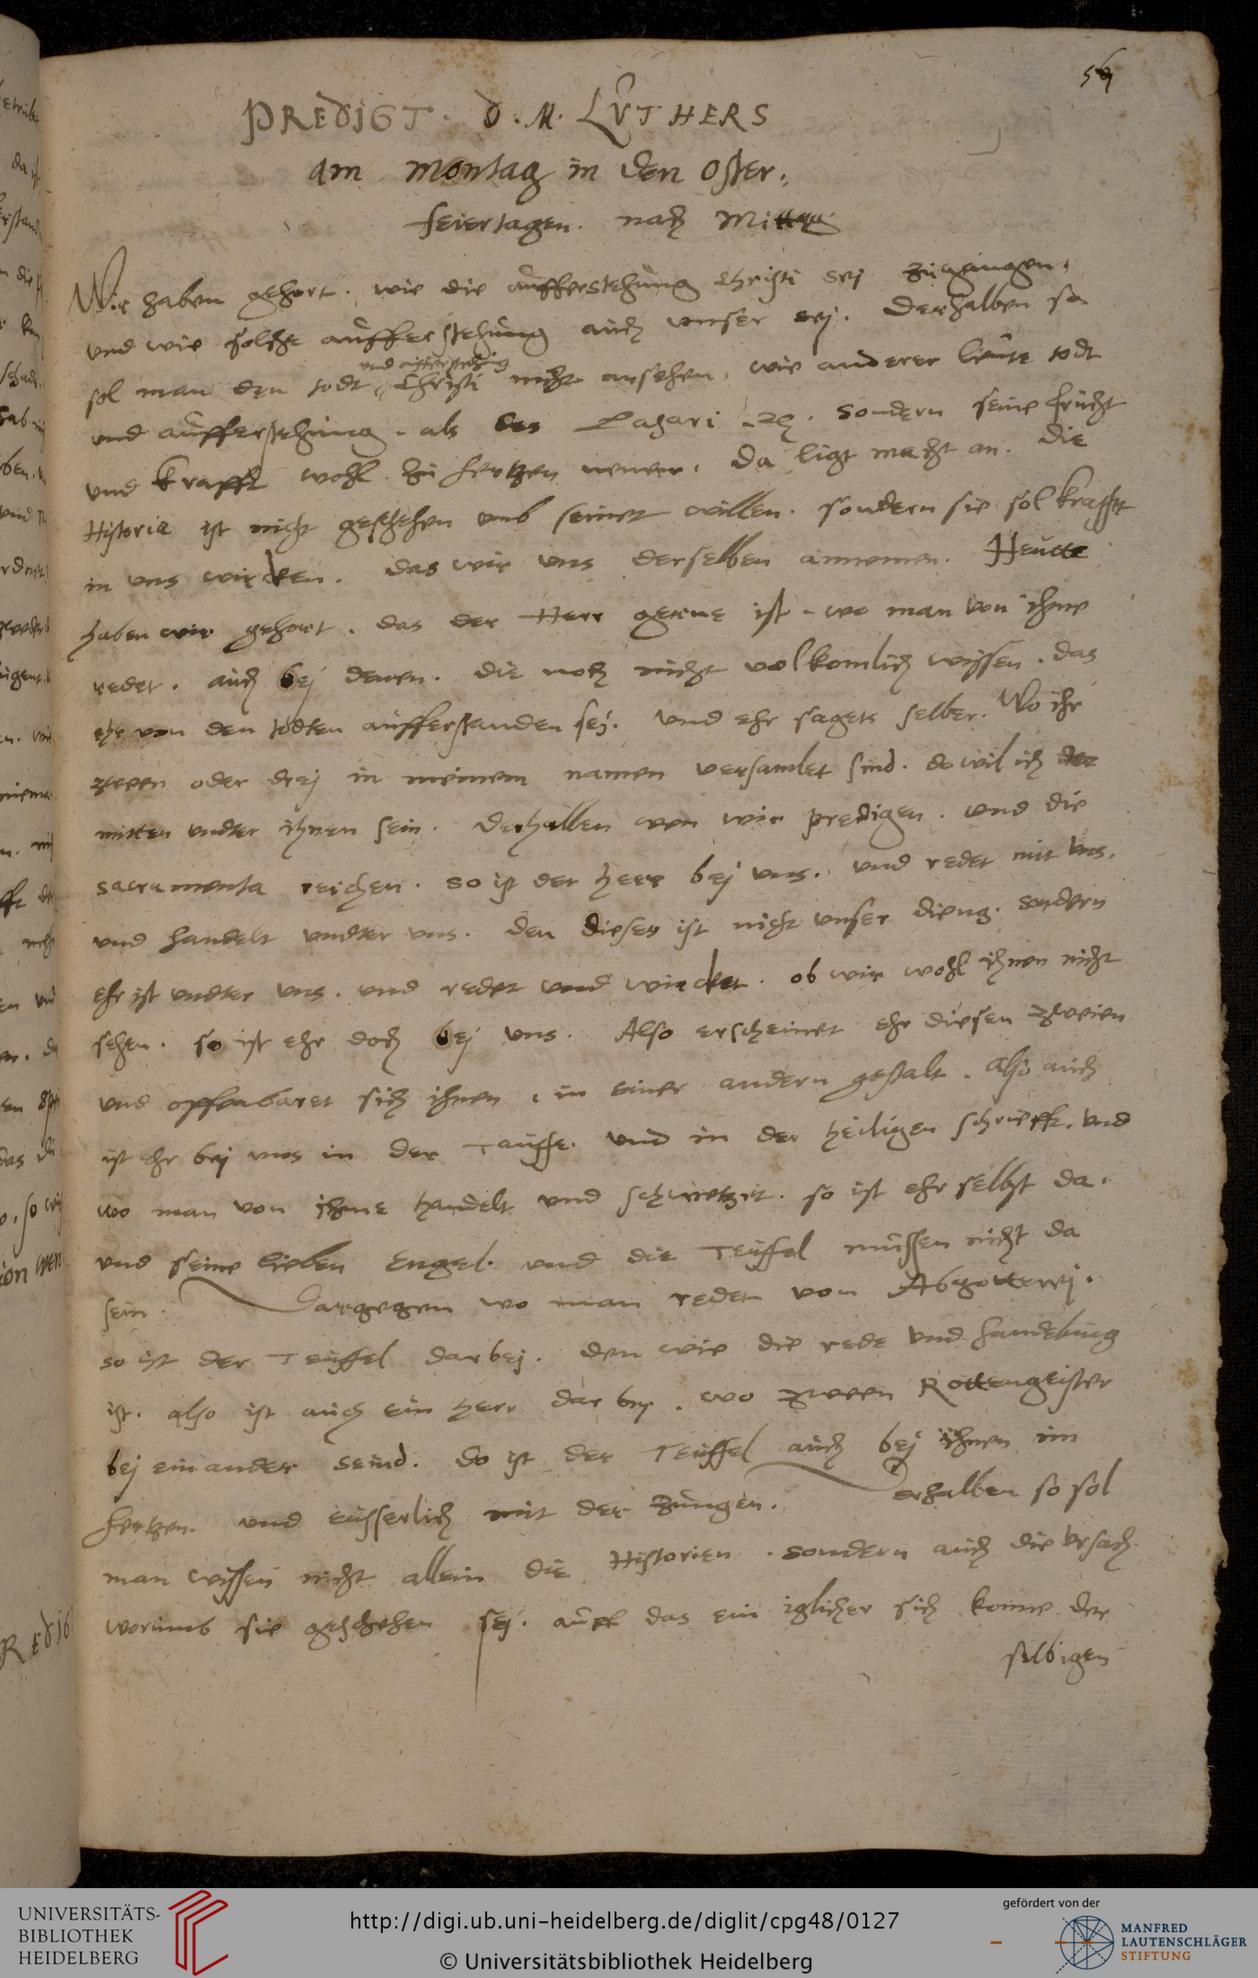 56
PREDIGT. D. M. LUTHERS
am montag in den Oster,
feiertagen. nach Mittag
Wir haben gehort. wie die aufferstehung Christi sej zugangen,
und wie solche aufferstehung auch unser sej. Derhalben so
und aufferstehung
sol man den todt Christi nicht ansehen, wie anderer leute todt
und aufferstehung. als des Lazari ꝛc. Sondern seine frucht
und krafft wohl zu hertzen nemen, da ligt macht an. Die
Historia ist nicht geschehen umb seinet willen. sondern sie sol krafft
in uns wircken. das wir uns derselben annemen. Heutte
haben wir gehort. das der Herr gerne ist, wo man von ihme
redet. auch bej denen. die noch nicht volkomlich wissen. das
ehr von den todten aufferstanden sej. und ehr sagets selber. Wo ihr
zween oder drej in meinem namen versamlet sind. do wil ich der
mitten undter ihnen sein. Derhalben wen wir predigen. und die
sacramenta reichen. so ist der herr bej uns. und redet mit uns.
und handelt undter uns. den dieses ist nicht unser dieng. sondern
ehr ist undter uns. und redet und wircket. ob wir wohl ihnen nicht
sehen. so ist ehr doch bej uns. Also erscheinet ehr diesen zweien
und offenbaret sich ihnen, in einer andern gestalt. also auch
ist ehr bej uns in der Tauffe. und in der heiligen schriefft. und
wo man von ihme handelt und schwetzet. so ist ehr selbst da.
und seine lieben Engel. und die Teuffel mussen nicht da
sein. Dargegen wo man redet von Abgotterej.
so ist der Teuffel darbej. den wie die rede und handelung
ist. also ist auch ein herr darbej. wo zween Rottengeister
bej einander seind. do ist der Teuffel auch bej ihnen im
hertzen und eusserlich mit der zungen. Derhalben so sol
man wissen nicht allein die Historien. sondern auch die ursach
worumb sie geschehen sej. auff das ein iglicher sich konne der
selbigen
UNIVERSITÄTS-
BIBLIOTHEK
HEIDELBERG
http://digi.ub.uni-heidelberg.de/diglit/cpg48/0127
© Universitätsbibliothek Heidelberg
gefördert von der
MANFRED
LAUTENSCHLÄGER
STIFTUNG